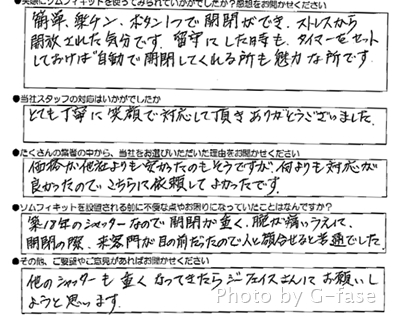 ●実際にソムフィキットを使ってみられていかがでしたか?感想をお聞かせください
簡単、楽チン、ボタン1つで開閉ができ、ストレスから
開放された気分です。留守にした日時も、タイマーをセット
しておけば自動で開閉してくれる所も魅力な所です。
●当社スタッフの対応はいかがでしたか
とても丁寧に笑顔で対応して頂きありがとうございました。
●たくさんの業者の中から、当社をお選びいただいた理由をお聞かせください
価格が他社よりも安かったのもそうですが、何よりも対応が
良かったので、こちらに依頼してよかったです。
●ソムフィキットを設置される前に不便な点やお困りになっていたことはなんですか?
築18年のシャッターなので開閉が重く、腕が痛いうえに、
開閉の際、来客門が目の前だったので人と顔合せると苦通でした。
●その他、ご要望やご意見があればお聞かせください
他のシャッターも重くなってきたらジーフェイスさんにお願いし
ようと思います。
Photo by G-fase